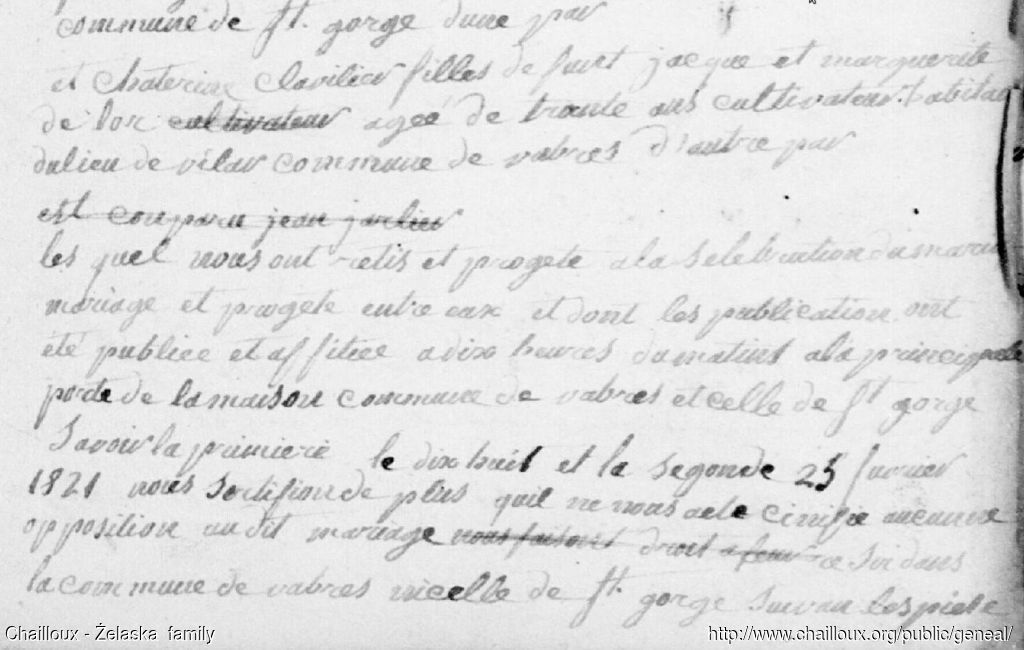 commune de St. gorge dune par
et Chaterine Clavilier filles de fuut jacque et marguerite
de lor cultivateur ageé de trante ans cultivateur habitan
du lieu de vélar commune de vabres d'autre par
est conparu jean jarlier
les quel nous ont retis et progete a la selebration du
mariage et progete entre eux et dont les publication ont
été publiee et affitiee a dix heures du matins a la principalle
porte de la maison commune de vabres et celle de St gorge
Savoir la primierie le dix huit et la segonde 25 fuvrier
1821 nous Sertifion de plus quil ne nous a ete Cinifie aucunne
opposition au dit mariage nous faisont droit a leur re Soi dans
la commune de vabres nicelle de St. gorge Suivan les piete
Chailloux - Żelaska family
http://www.chailloux.org/public/geneal/